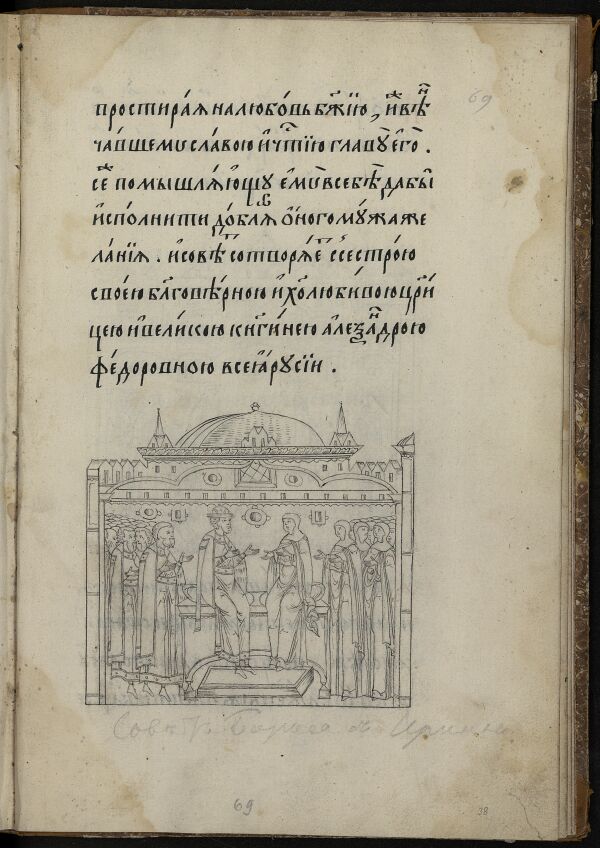 69
простираѧ на любовь бж҃їю, и вѣн
чавшему славою и чⷭ҇тїю главу его .
се помышлѧющу ему в себѣ дабы
исполнити доблѧ оного мужа же
ланїѧ . и совѣт сотворѧет с сестрою
своею бл҃говѣрною и хрⷭ҇толюбивою цр҃и
цею и великою кнг҃инею александрою
федоровною всеѧ русїи .
Совѣт Бориса с Ириною
69
38